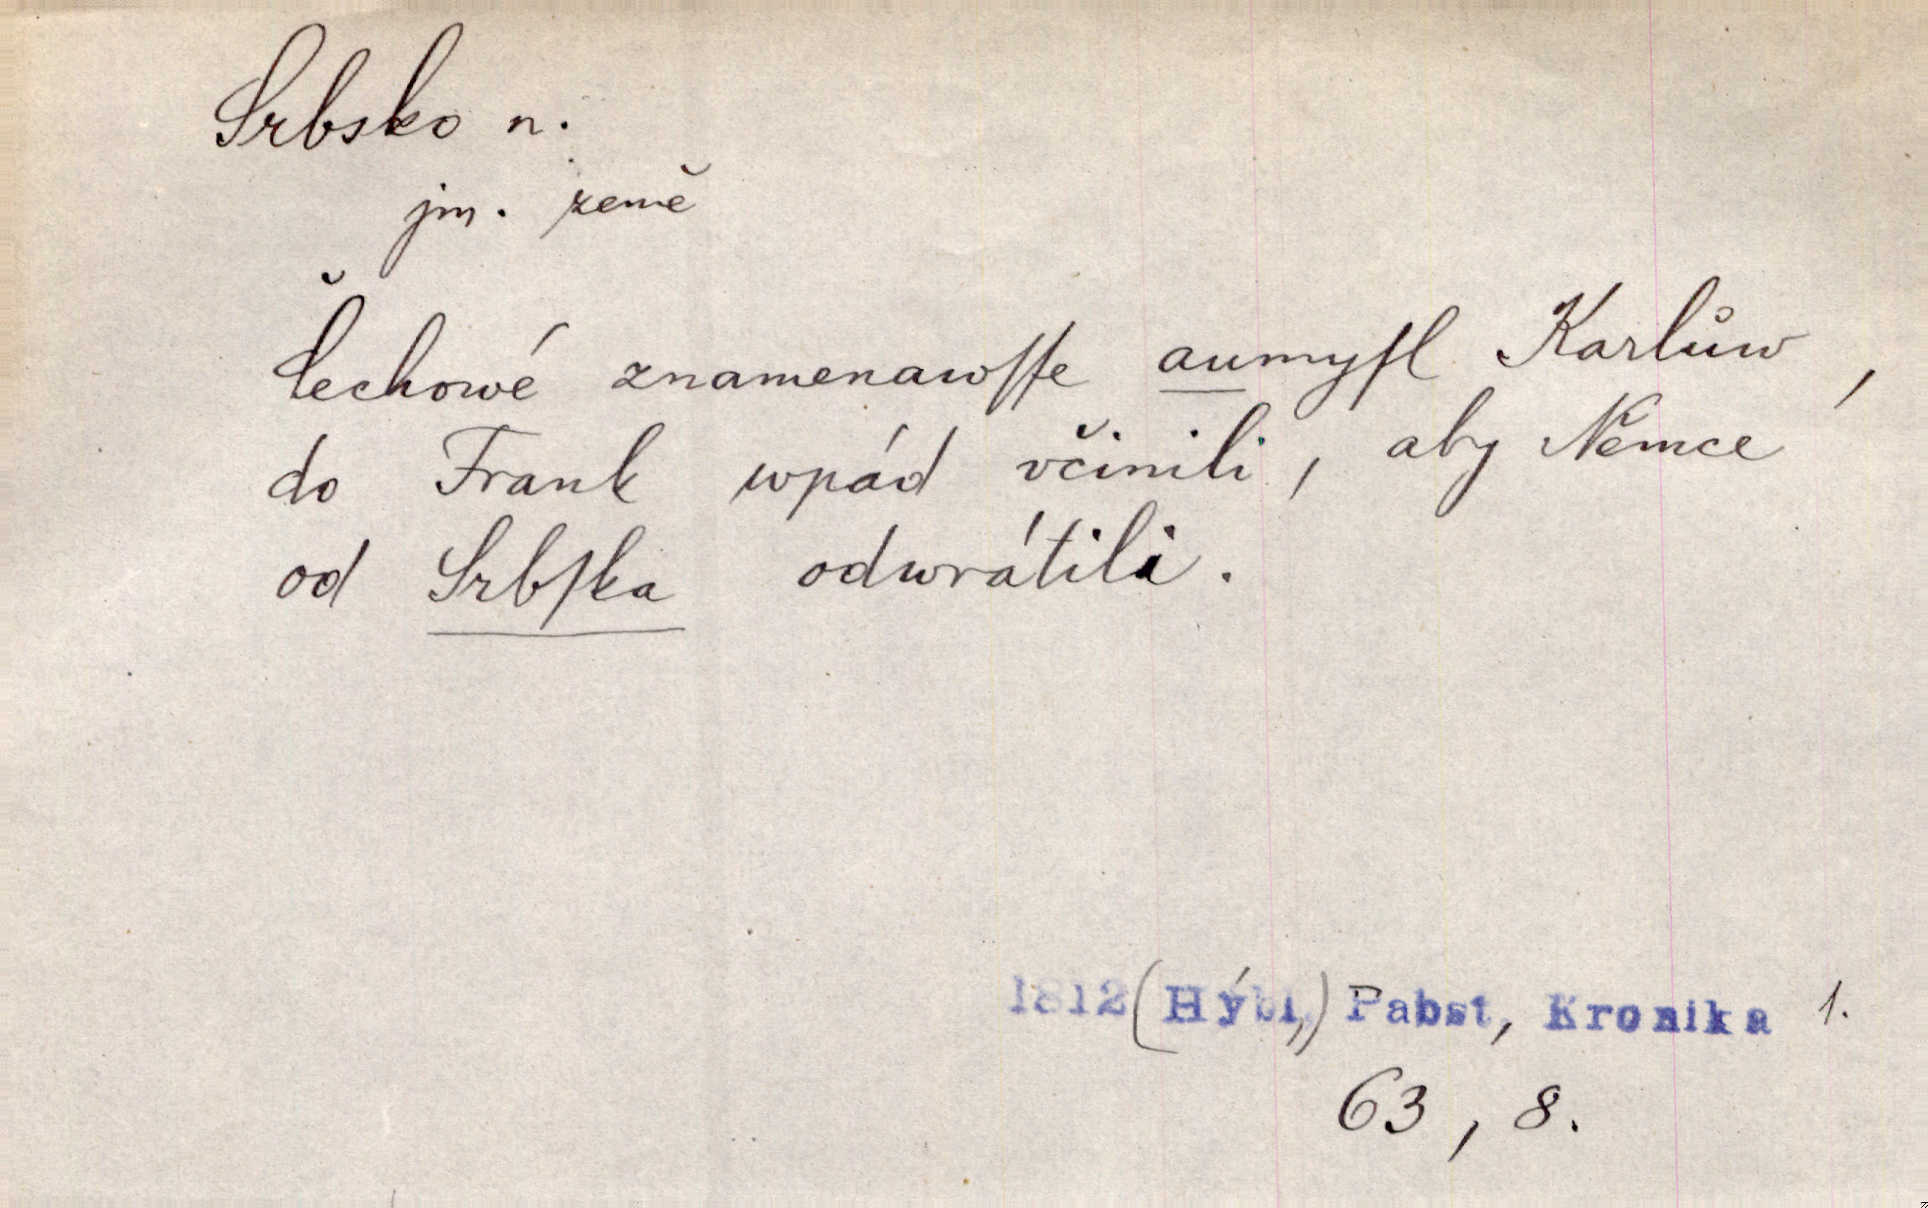 Srbsko n.
jm. země
Čechowé znamenawſſe aumyſl Karlůw,
do Frank wpád včinili, aby Němce
od Srbſka odwrátili.
1812 (Hýbl,) Pabst, Kronika 1.
63, 8.